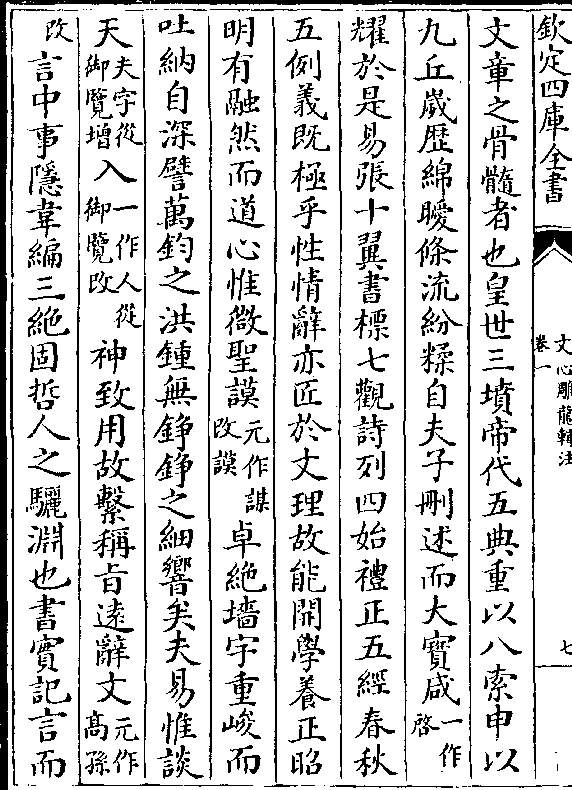 欽定四庫全書
文心雕龍輯注
卷一
七
文章之骨髓者也皇世三墳帝代五典重以八索申以
九丘嵗歴綿曖條流紛糅自夫子刪述而大寶咸一作啓
耀於是易張十翼書標七觀詩列四始禮正五經春秋
五例義既極乎性情辭亦匠於文理故能開學養正昭
明有融然而道心惟微聖謨元作謀改謨卓絶墻宇重峻而
吐納自深譬萬鈞之洪鍾無錚錚之細響矣夫易惟談
天夫字從御覽增入一作人從御覽改神致用故繫稱㫖逺辭文元作高孫
改言中事隱韋編三絶固哲人之驪淵也書實記言而